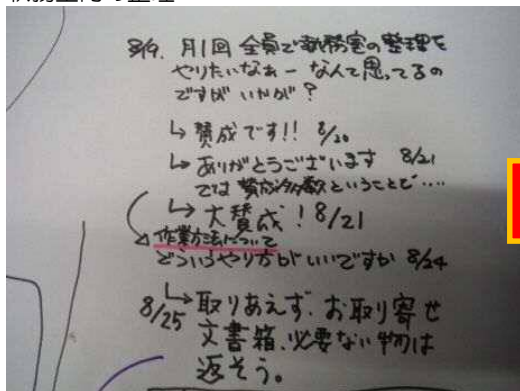 8/19. 月1回 全員で執務室の整理を
やりたいなぁー なんて思ってるの
ですが いかが?
↳ 賛成です!! 8/20
↳ ありがとうございます 8/21
では 賛成多数ということで‥‥
↳ 大賛成！8/21
作業方法について
どういうやり方がいいですか 8/24
8/25 ↳取りあえず、お取り寄せ
文書箱、必要ない物は
返そう。